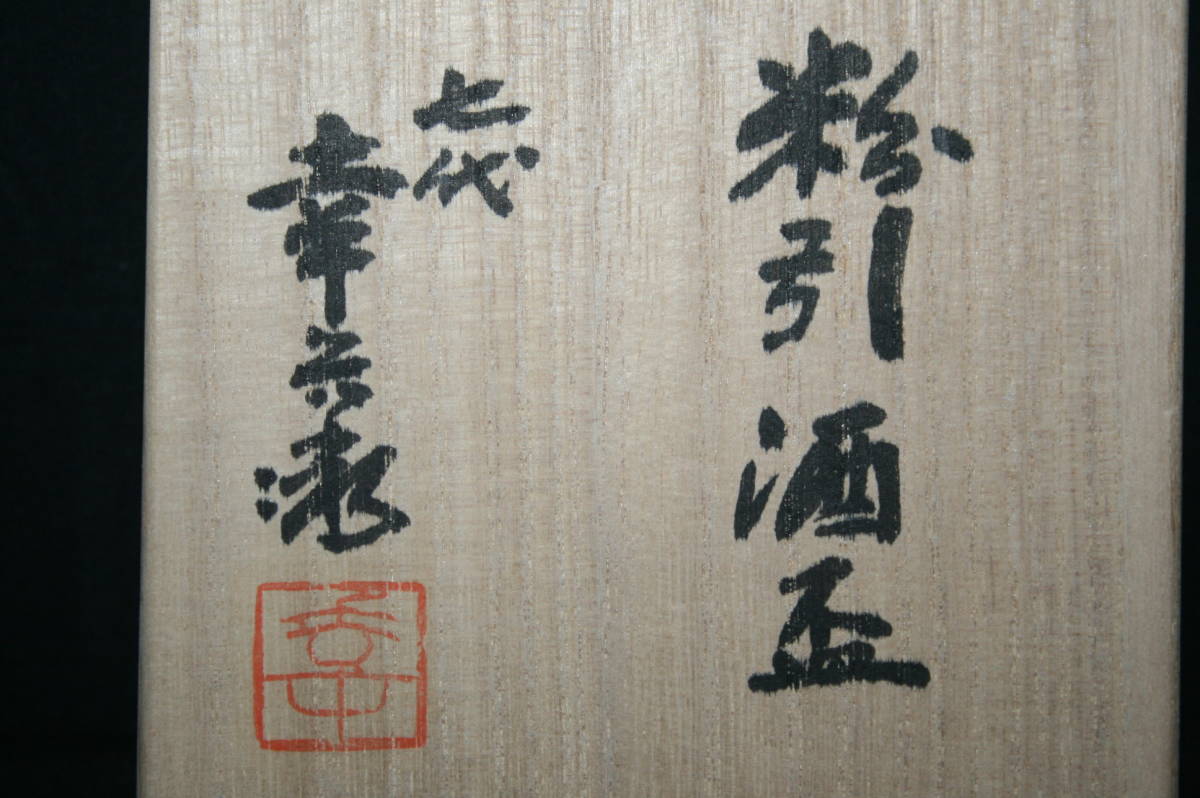 粉引酒盃
七代
幸兵衛